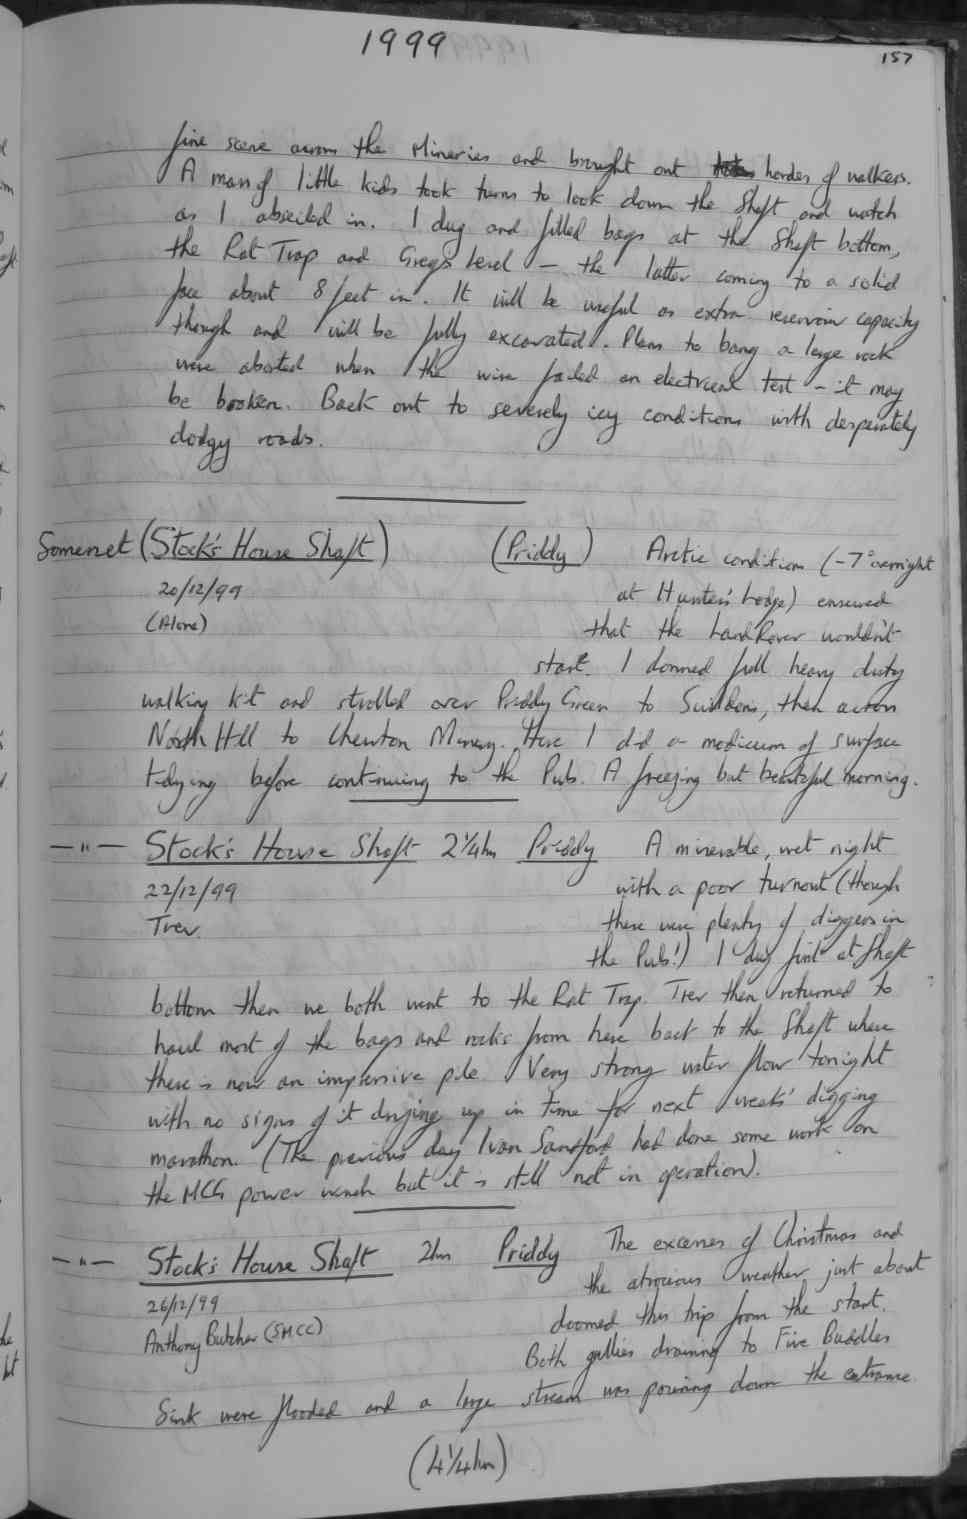 1999
157
fine scene across the Mineries and brought out hordes of walkers.
A man & little kids took turns to look down the Shaft and watch
as I abseiled in. I dug and filled bags at the Shaft bottom,
the Rat Trap and Greg's Level – the latter coming to a solid
face about 8 feet in. It will be useful as extra reservoir capacity
though and will be fully excavated. Plans to bang a large rock
were aborted when the wire failed an electrical test – it may
be broken. Back out to severely icy conditions with desperately
dodgy roads.
Somerset (Stock's House Shaft) (Priddy) Arctic conditions (-7° overnight
20/12/99 at Hunters' Lodge) ensured
(Alone) that the LandRover wouldn't
start. I donned full heavy duty
walking kit and strolled over Priddy Green to Swildons, then across
North Hill to Chewton Minery. Here I did a modicum of surface
tidying before continuing to the Pub. A freezing but beautiful morning.
—"— Stock's House Shaft 2¼hrs Priddy A miserable, wet night
22/12/99 with a poor turnout (though
Trev. there were plenty of diggers in
the Pub!) I dug first at Shaft
bottom then we both went to the Rat Trap. Trev then returned to
haul most of the bags and rocks from here back to the Shaft where
there is now an impressive pile. Very strong water flow tonight
with no signs of it drying up in time for next weeks' digging
marathon. (The previous day Ivan Sandford had done some work on
the MCG power winch but it is still not in operation).
—"— Stock's House Shaft 2hrs Priddy The excesses of Christmas and
26/12/99 the atrocious weather just about
Anthony Butcher (SMCC) doomed this trip from the start.
Both gullies draining to Five Buddles
Sink were flooded and a large stream was pouring down the entrance
(4¼hrs)